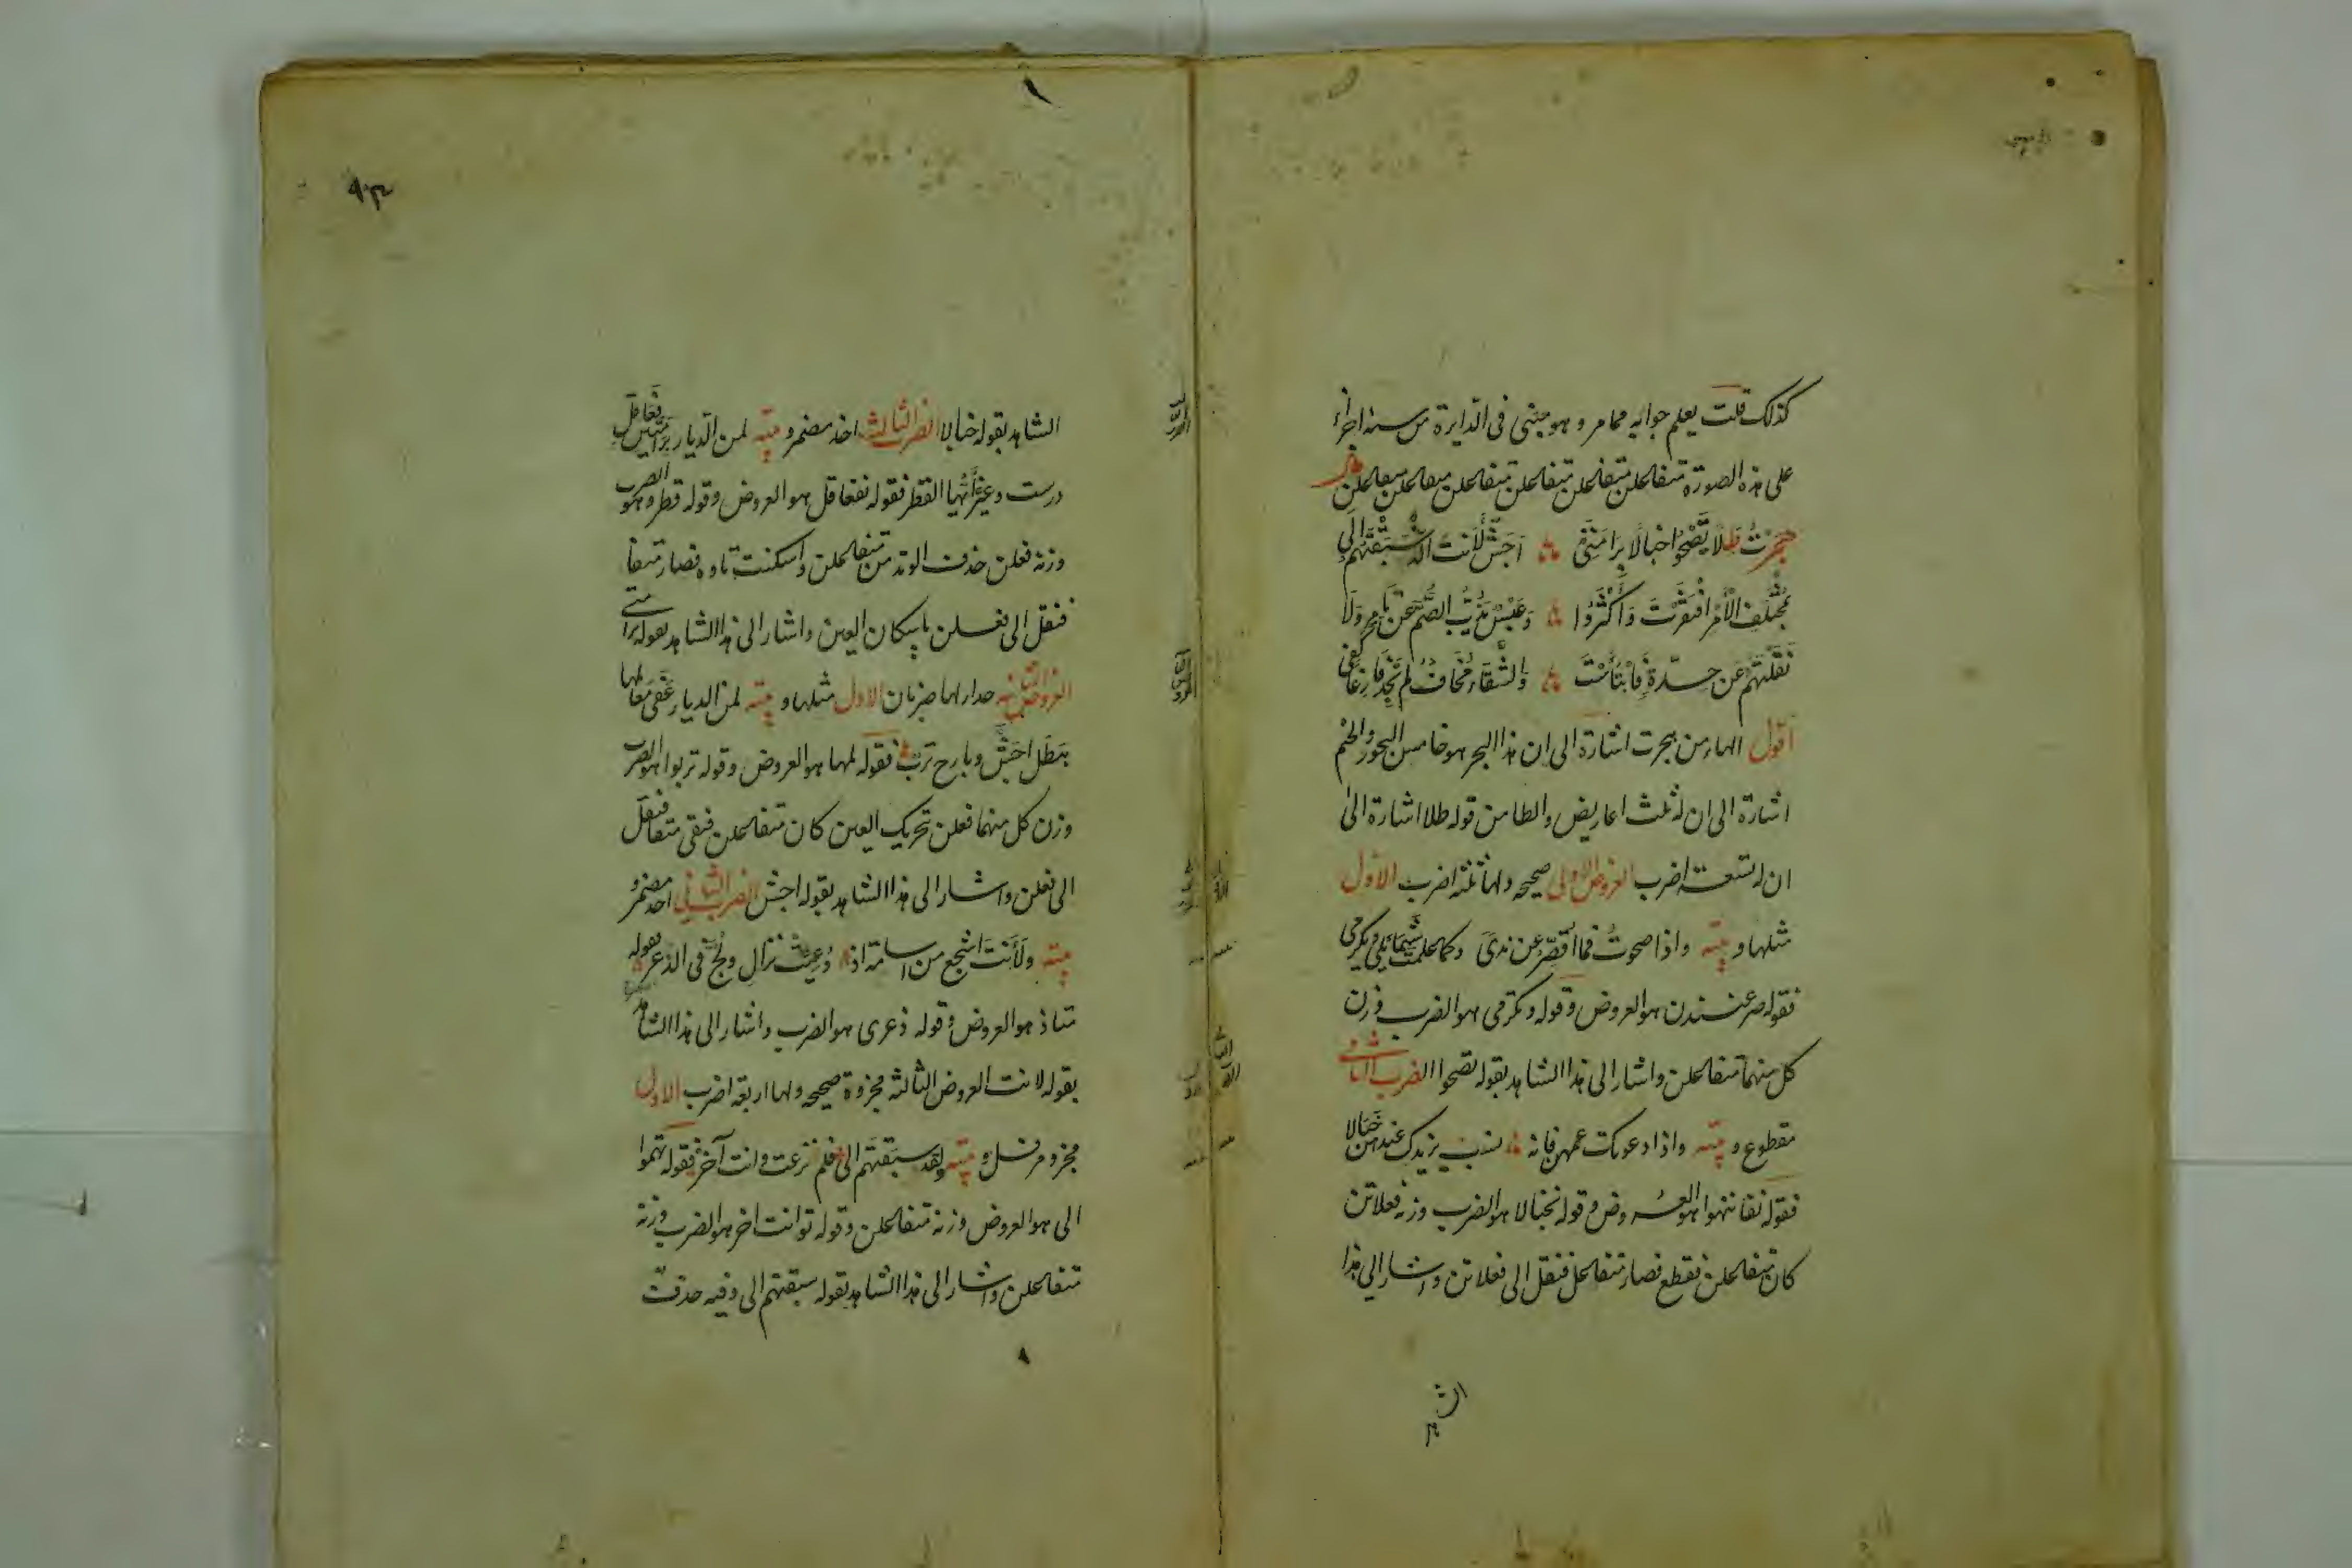 كذلك قلت يعلم جوابه مما مر و هو مبنى فى الدايرة من ستة اجزاء
على هذه الصورة متفاعلن متفاعلن متفاعلن متفاعلن متفاعلن متفاعلن
هجرت طلا يصحوا خبالا برامتى اجش لأنت الذ سبقتهم الى
بمختلف الأمر افتقرت و أكثروا و عبس يذب الصم عن تامر ولا
نقلتهم عن حدة فابتأست والشقاء مخاف لم تجد فارغا كفى
اقول الهاء من هجرت اشارة الى ان هذا البحر هو خامس البحور والجيم
اشارة الى ان له ثلث اعاريض والطا من قوله طلا اشارة الى
ان له تسعة اضرب العروض الاولى صحيحه ولها ثلثة اضرب الاول
مثلها و بيته واذا صحوت فما اقصر عن ندى وكما علمت شمائلي وتكرمى
فقوله صر عن ندن هو العروض وقوله وتكرمى هو الضرب وزن
كل منهما متفاعلن واشار الى هذا الشاهد بقوله يصحوا الضرب الثانى
مقطوع و بيته واذا دعونك عمهن فانه نسب يزيدك عندهن خبالا
فقوله نفانهوا هو العروض وقوله نخبالا هو الضرب وزنه فعلاتن
كان متفاعلن فقطع فصار متفاعل فنقل الى فعلاتن واشار الى هذا
الش
٩٣
الشاهد بقوله خبالا الضرب الثالث احذ مضمر و بيته لمن الديار برامتين فعاقل
درست و غير آيها القطر فقوله نفعاقل هو العروض وقوله قطرو هو الضرب
وزنه فعلن حذف الوتد من متفاعلن واسكنت تاوه فصار متفا
فنقل الى فعلن باسكان العين واشار الى هذا الشاهد بقوله برامتى
العروض الثانيه حذا ولها ضربان الاول مثلها و بيته لمن الديار عفى معالمها
بطل اجش وبارح ترب فقوله لمها هو العروض وقوله تربوا هو الضرب
وزن كل منهما فعلن تحريك العين كان متفاعلن فبقى متفا فنقل
الى فعلن واشار الى هذا الشاهد بقوله اجش الضرب الثانى احذ مضمر و
بيته ولأنت اشجع من اسامة اذ دعيت نزال ولج فى الذعر فقوله
متاذ هو العروض وقوله ذعرى هو الضرب واشار الى هذا الشاهد
بقوله لانت العروض الثالثه مجزوة صحيحه ولها اربعة اضرب الاول
مجزو مرفل و بيته ولقد سبقتهم الى فلم نزعت وانت آخر فقوله تهموا
الى هو العروض وزنه متفاعلن وقوله توانت اخر هو الضرب وزنه
متفاعلن واشار الى هذا الشاهد بقوله سبقتهم الى وفيه حذفت